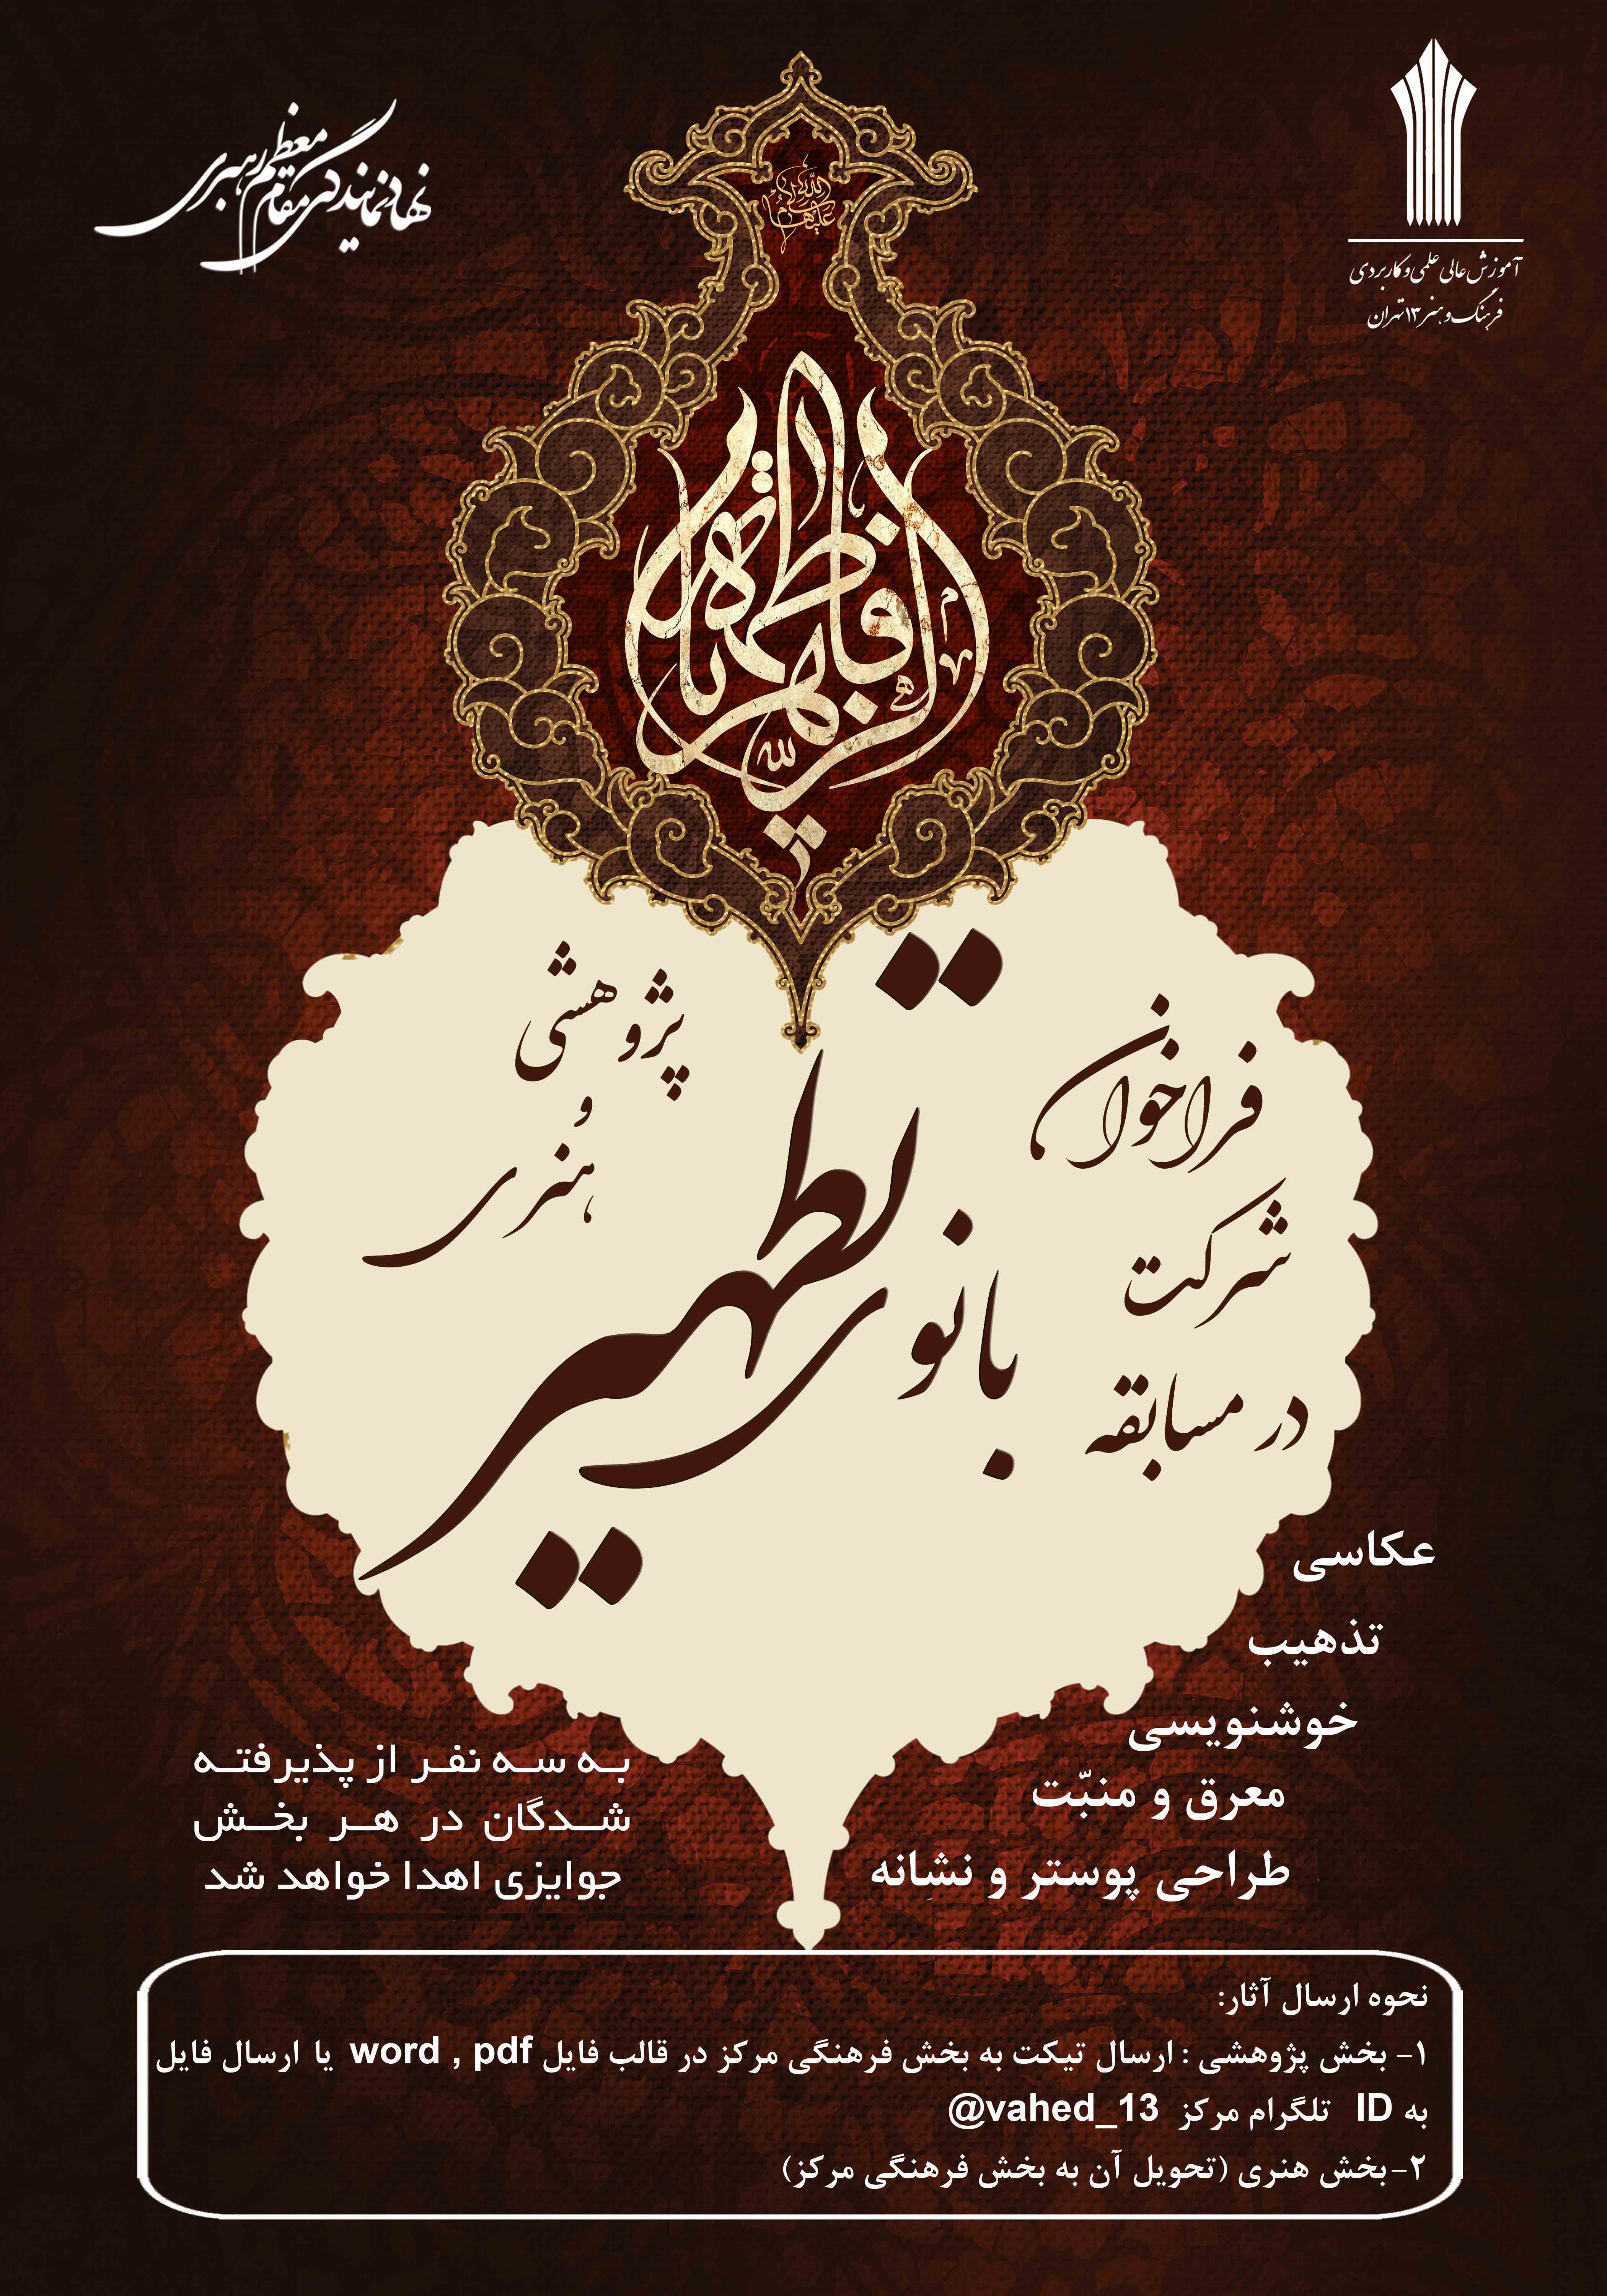 آموزش عالی علمی و کاربردی
فرهنگ و هنر ۱۳ تهران
نهاد نمایندگی مقام معظم رهبری
فاطمة الزهراء
فراخوان
شرکت
در مسابقه
پژوهشی
و
هنری
بانوی تطهیر
عکاسی
تذهیب
خوشنویسی
معرق و منبّت
طراحی پوستر و نشانه
به سه نفر از پذیرفته
شدگان در هر بخش
جوایزی اهدا خواهد شد
نحوه ارسال آثار:
۱- بخش پژوهشی : ارسال تیکت به بخش فرهنگی مرکز در قالب فایل word , pdf یا ارسال فایل
به ID تلگرام مرکز @vahed_13
۲-بخش هنری (تحویل آن به بخش فرهنگی مرکز)